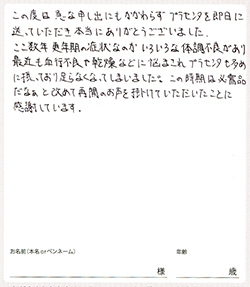 この度は 急な申し出にもかかわらず プラセンタを即日に
送っていただき本当にありがとうございました。
ここ数年 更年期の症状なのか いろいろな体調不良があり
最近も血行不良や乾燥などに悩まされ プラセンタも多め
に摂っており足らなくなってしまいました。この時期は必需品
だなぁと改めて再開のお声を掛けていただいたことに
感謝しています。
お名前(本名orペンネーム)
年齢
様
歳